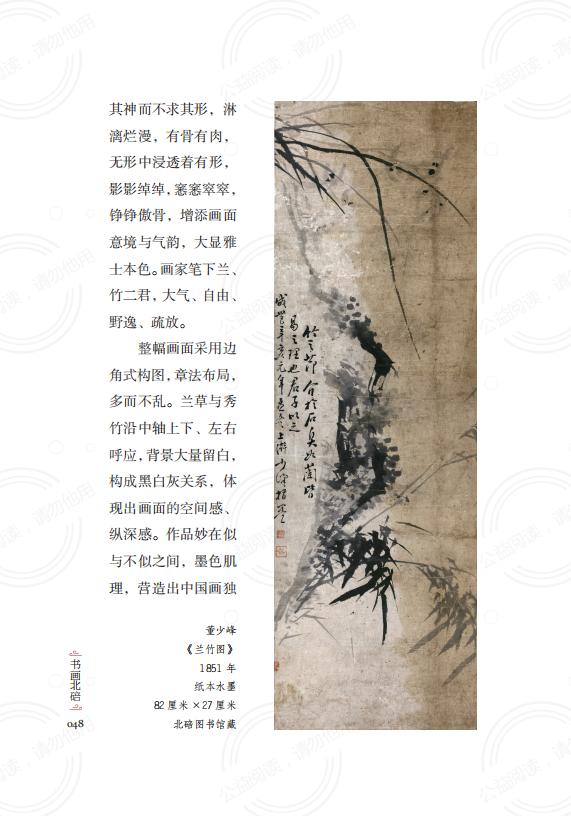 其神而不求其形，淋
漓烂漫，有骨有肉，
无形中浸透着有形，
影影绰绰，窸窸窣窣，
铮铮傲骨，增添画面
意境与气韵，大显雅
士本色。画家笔下兰、
竹二君，大气、自由、
野逸、疏放。
整幅画面采用边
角式构图，章法布局，
多而不乱。兰草与秀
竹沿中轴上下、左右
呼应，背景大量留白，
构成黑白灰关系，体
现出画面的空间感、
纵深感。作品妙在似
与不似之间，墨色肌
理，营造出中国画独
竹之节 介于石 臭如蘭皆
易之理也君子以之
咸豐辛亥元年
董少峰
《兰竹图》
1851 年
纸本水墨
82 厘米 ×27 厘米
北碚图书馆藏
书画北碚
048
公益阅读，请勿他用